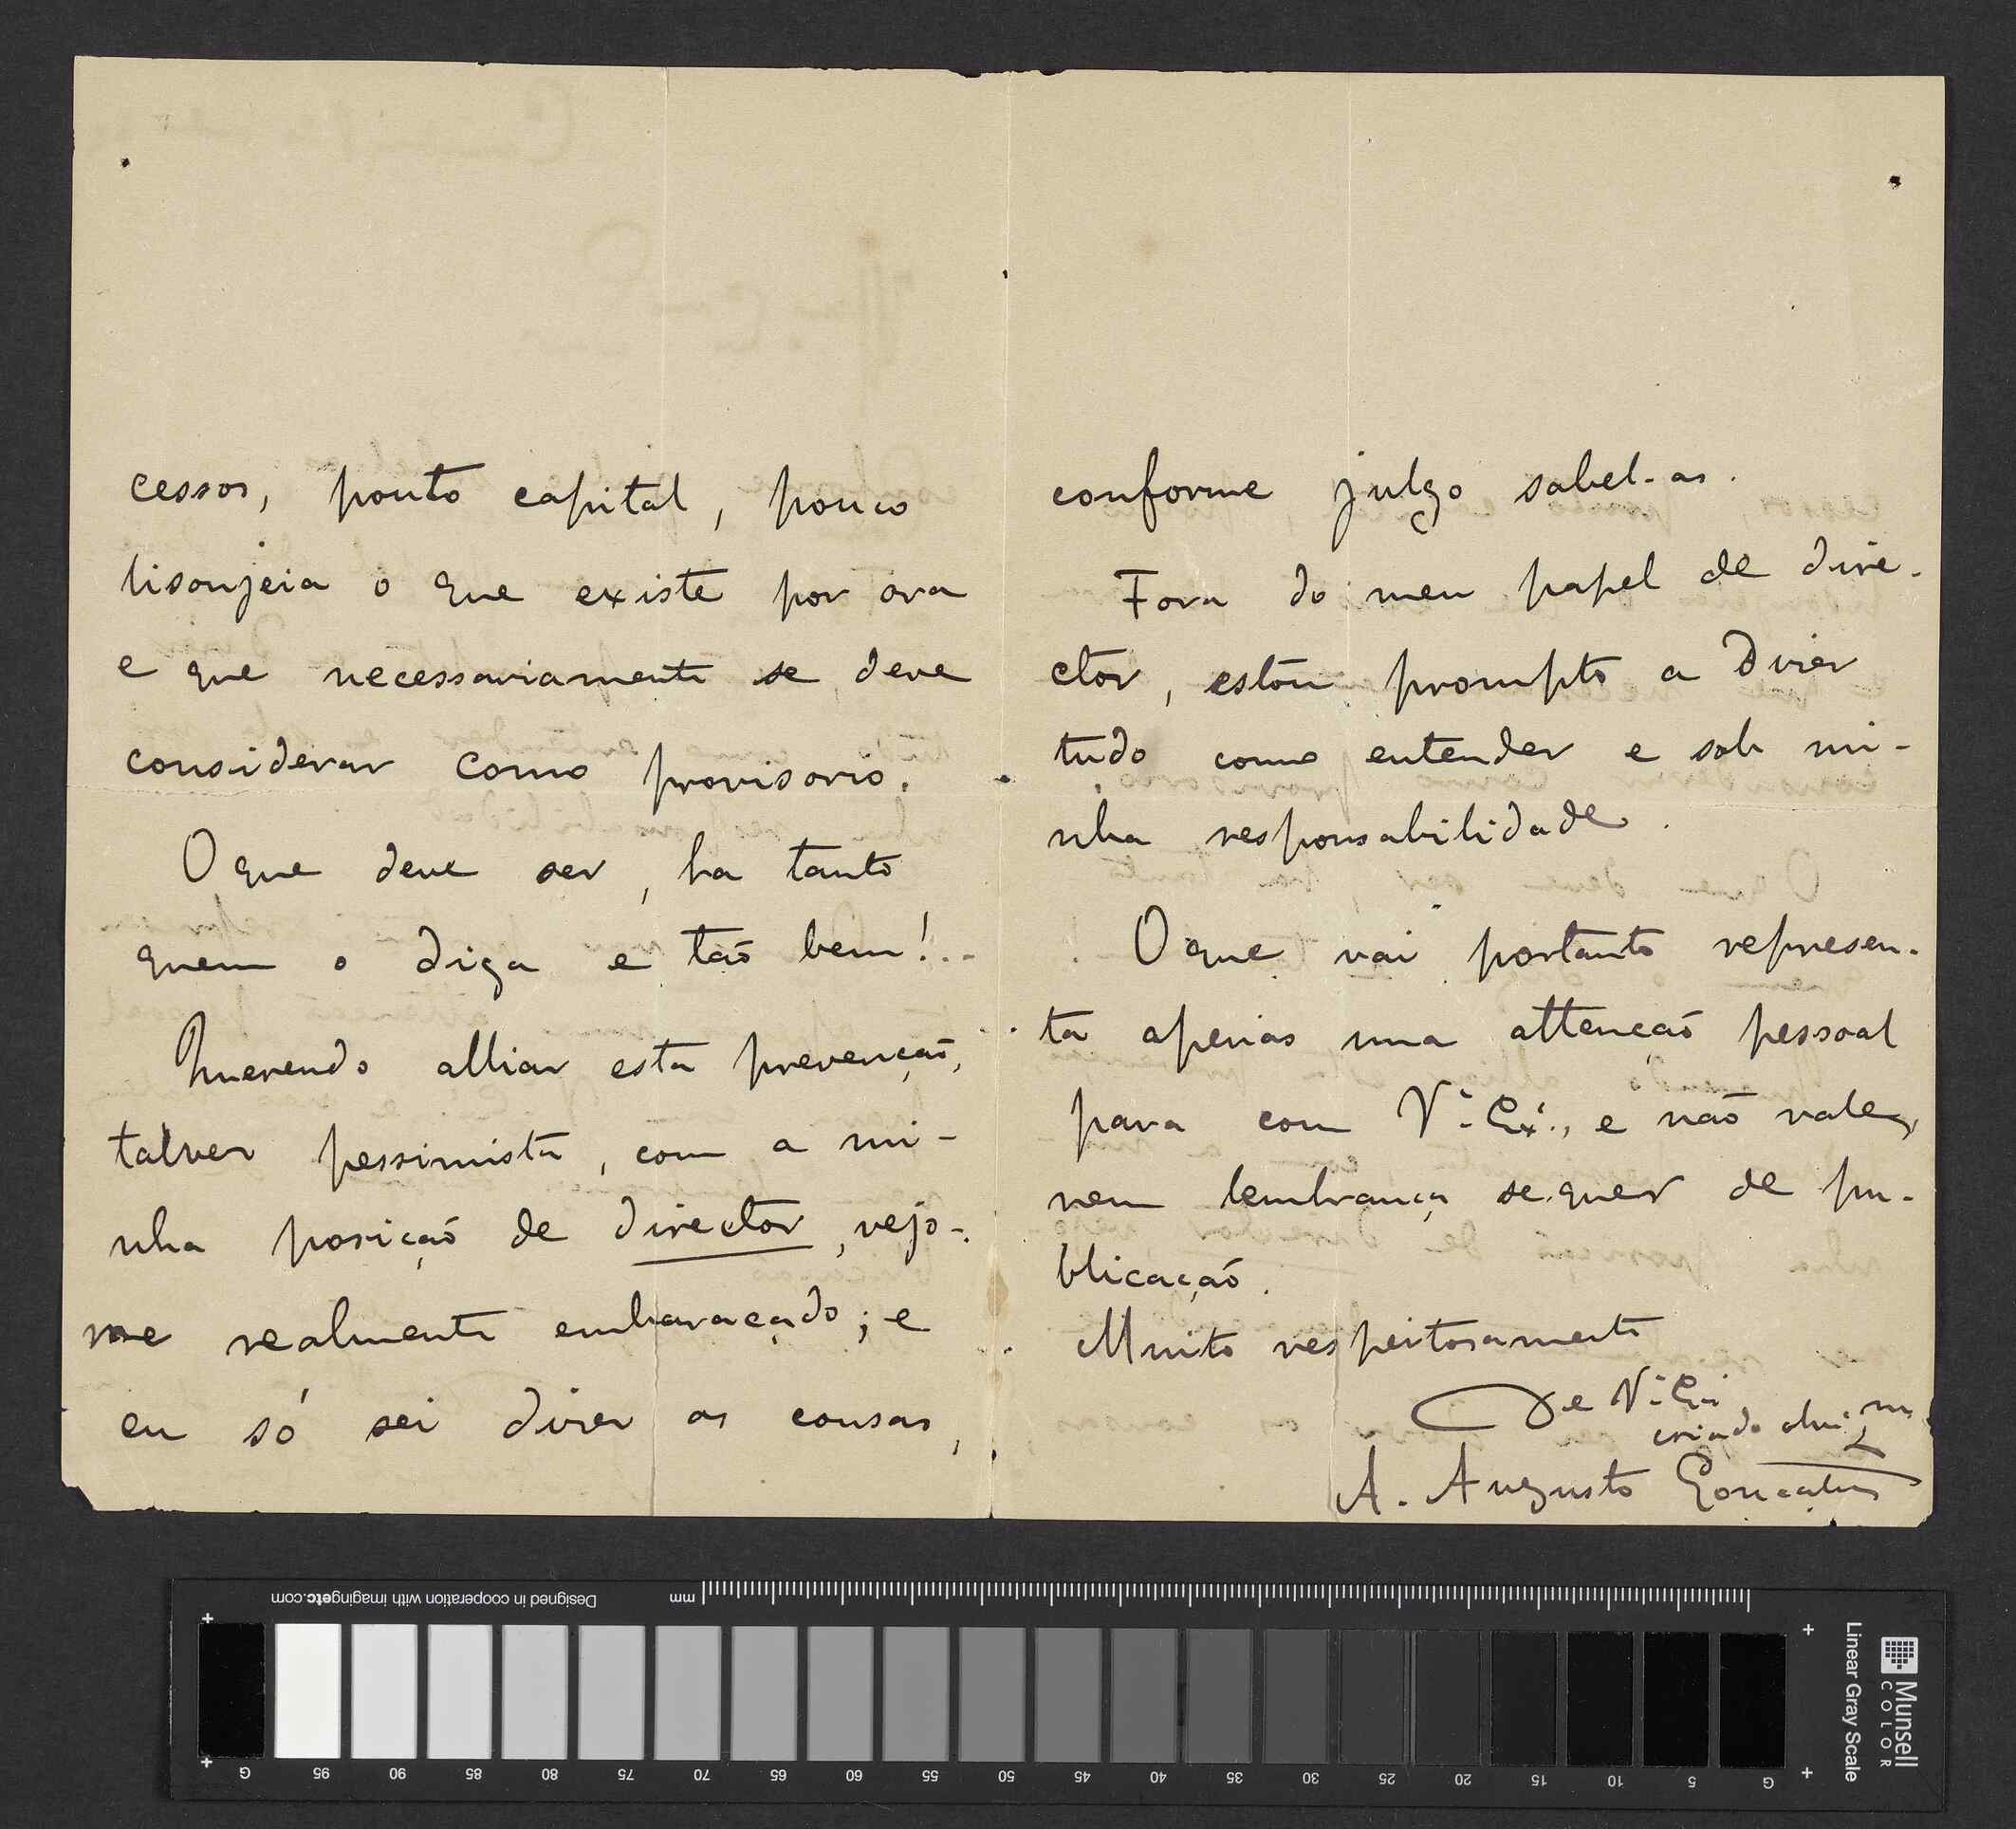 cessos, ponto capital, pouco
lisonjeia o que existe por ora
e que necessariamente se deve
considerar como provisorio.
O que deve ser, ha tanto
quem o diga e tão bem!..
Querendo alliar esta prevenção,
talvez pessimista, com a mi-
nha posição de director, vejo-
me realmente embaraçado; e
eu só sei dizer as cousas,
conforme julgo sabel-as.
Fora do meu papel de dire-
ctor, estou prompto a dizer
tudo como entender e sob mi-
nha responsabilidade.
O que vai portanto represen-
ta apenas uma attenção pessoal
para com V.ª Ex.ª, e não vale,
nem lembrança sequer de pu-
blicação.
Muito respeitosamente
De V.ª Ex.ª
criado
A. Augusto Gonçalves
Designed in cooperation with imagingetc.com
mm
Munsell
COLOR
Linear Gray Scale
G 95 90 85 80 75 70 65 60 55 50 45 40 35 30 25 20 15 10 5 G